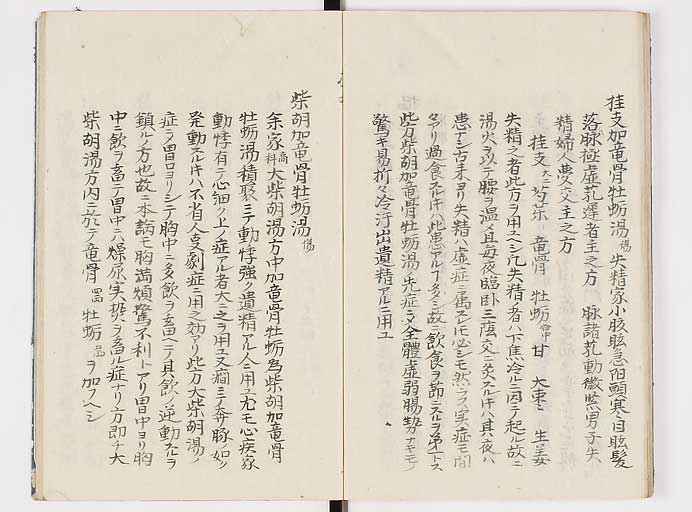 桂支加竜骨牡蛎湯 傷 失精家小腹眩急陰頭寒目眩髪
落脉極虚芤遲者主之方 脉諸芤動微緊男子失
精婦人夢交主之方
桂支 大 芍薬 竜骨 牡蛎 中 甘 大棗 生姜
失精之者此方ヲ用ヘシ凡失精者ハ下焦冷ルニ因テ起ル故ニ
湯火ヲ以テ腰ヲ温メ且毎夜臨臥三陰交ニ灸スルキハ其夜ハ
患ナシ古来ヨリ失精ハ虚症ニ属スルモ必シモ然ラス実症モ間
アリ過食スルキハ此患アルヿ多シ故ニ飲食ヲ節ニスルヲ第一トス
此方柴胡加竜骨牡蛎湯ノ症ニメ全體虚弱腸勢ナキモノ
驚キ易折々冷汗出遺精アルニ用ユ
柴胡加竜骨牡蛎湯 傷
余家 高料 大柴胡湯方中加竜骨牡蛎為柴胡加竜骨
牡蛎湯積聚ニテ動悸強ク遺精アル人ニ用ユ尤モ心疾家
動悸有テ心細ク上ノ症アル者大ニ之ヲ用ユ又癇ニテ奔豚ノ如ク
発動スルキハ不省人支劇症ニ用之効アリ此方大柴胡湯ノ
症ヲ胃口ヨリシテ胸中ニ多飲ヲ畜ヘテ其飲ノ逆動スルヲ
鎮ルノ方也故ニ本論モ胸満煩驚不利トアリ胃中ヨリ胸
中ニ飲ヲ畜テ胃中ニハ燥尿実挾ヲ畜ル症ナリ方即チ大
柴胡湯方内ニ於テ竜骨 牡蛎 ヲ加フヘシ